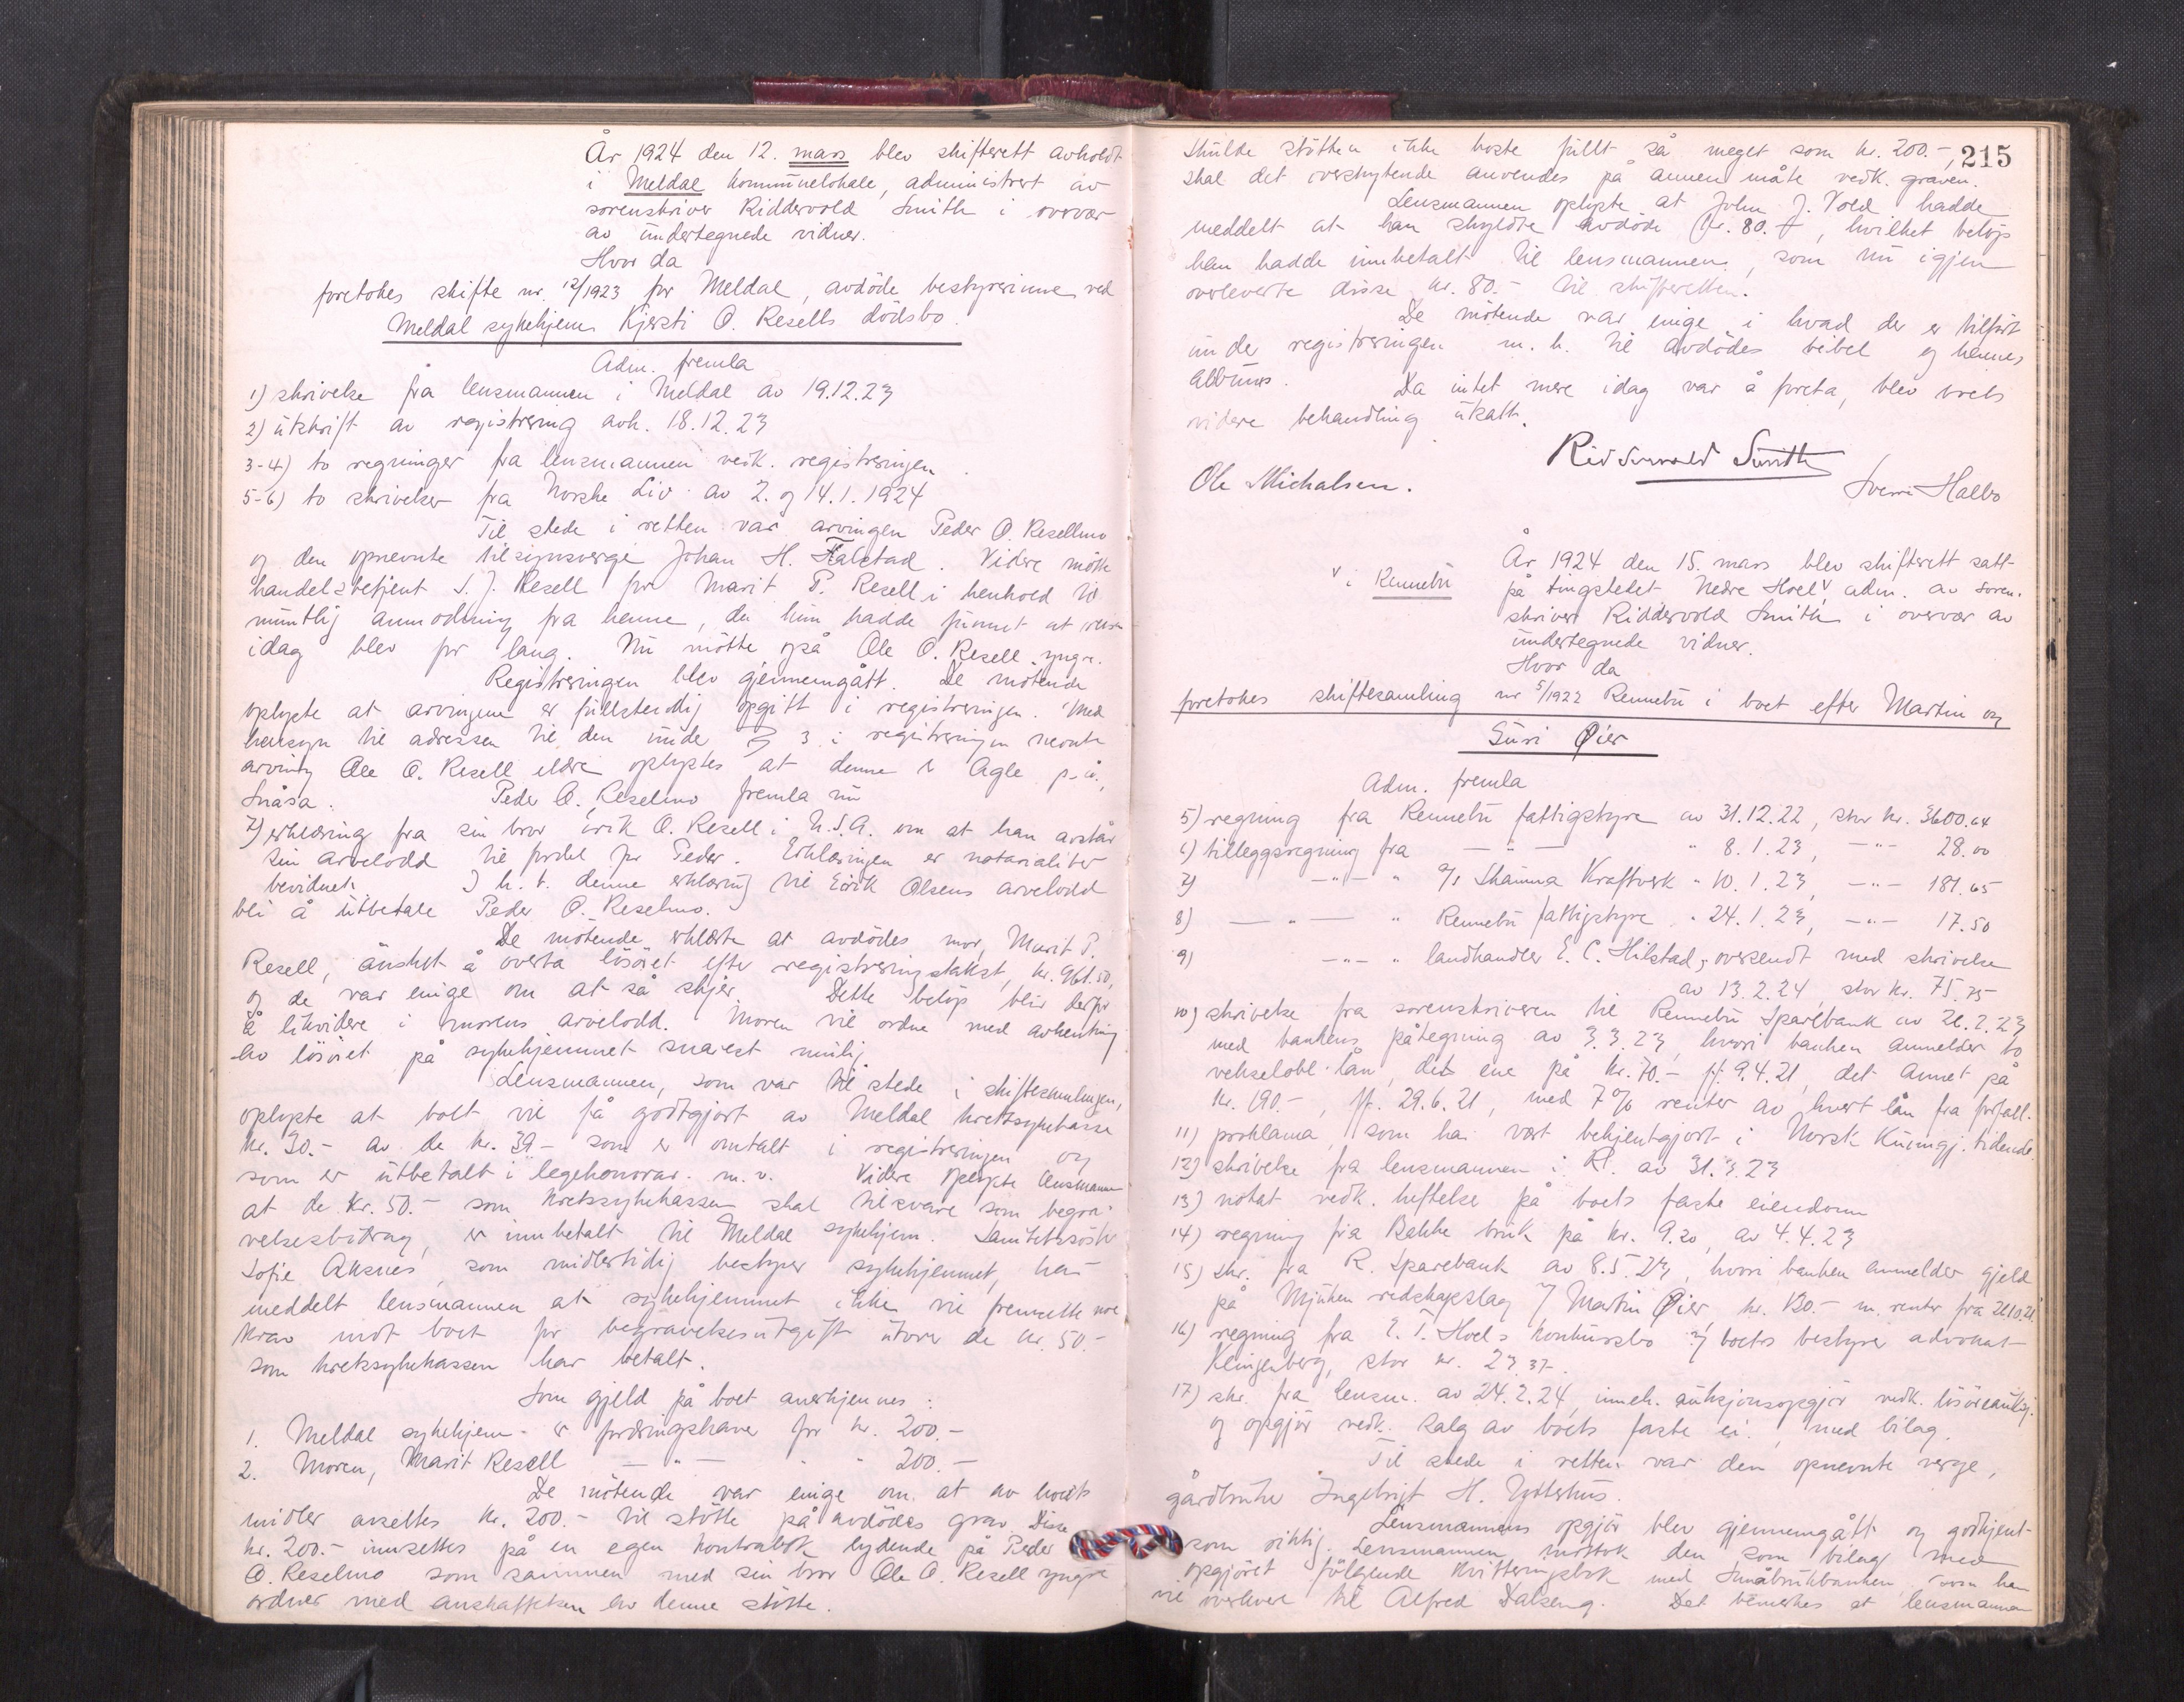 År 1924 den 12. mars blev skifterett avholdt
i Meldal kommunelokale, administrert av
sorenskriver Riddervold Smith i overvær
av undertegnede vidner.
Hvor da
foretokes skifte nr. 12/1923 for Meldal, avdøde bestyrerinne ved
Meldal sykehjem Kjersti O. Resells dødsbo.
Adm. fremla
1) skrivelse fra lensmannen i Meldal av 19.12.23
2) utskrift av registrering avh. 18.12.23
3-4) to regninger fra lensmannen vedk. registreringen.
5-6) to skrivelser fra Norske Liv av 2. og 14.1.1924
Til stede i retten var arvingen Peder O. Resellmo
og den opnevnte tilsynsverge Johan H. Kalstad. Videre møtte
handelsbetjent S. J. Resell for Marit P. Resell i henhold til
muntlig anmodning fra henne, da hun hadde funnet at reisen
idag blev for lang. Nu møtte også Ole O. Resell yngre.
Registreringen blev gjennemgått. De møtende
oplyste at arvingene er fullstendig opgitt i registreringen. Med
hensyn til adressen til den under 3 i registreringen nevnte
arving Ole O. Resell eldre oplystes at denne er Agle p.å.
Snåsa. Peder O. Reselmo fremla nu
7) erklæring fra sin bror Eirik O. Resell i U.S.A. om at han avstår
sin arvelodd til fordel for Peder. Erklæringen er notarialiter
bevidnet. I h. t. denne erklæring vil Eirik Olsens arvelodd
bli å utbetale Peder O. Reselmo.
De møtende erklærte at avdødes mor, Marit P.
Resell, ønsket å overta løsøret efter registreringstakst, kr. 961.50,
og de var enige om at så skjer. Dette beløp blir derfor
å likvidere i morens arvelodd. Moren vil ordne med avhentning
av løsøret på sykehjemmet snarest mulig.
Lensmannen, som var til stede i skiftesamlingen,
oplyste at boet vil få godtgjort av Meldal kretssykekasse
kr. 30.- av de kr. 39.- som er omtalt i registreringen og
som er utbetalt i legehonorar m. v. Videre oplyste lensmannen
at de kr. 50.- som kretssykekassen skal tilsvare som begra-
velsesbidrag, er innbetalt til Meldal sykehjem. Sanitetssøster
Sofie Aksnes, som midlertidig bestyrer sykehjemmet, har
meddelt lensmannen at sykehjemmet ikke vil fremsette noe
krav mot boet for begravelsesutgift utover de kr. 50.-
som kretssykekassen har betalt.
Som gjeld på boet anerkjennes:
1. Meldal sykehjem er fordringshaver for kr. 200.-
2. Moren, Marit Resell — " — " " 200.-
De møtende var enige om at av boets
midler avsettes kr. 200.- til støtte på avdødes grav. Disse
kr. 200.- innsettes på en egen kontrabok lydende på Peder
O. Reselmo som sammen med sin bror Ole O. Resell yngre
ordner med anskaffelsen av denne støtte.
215
Skulde støtten ikke koste fullt så meget som kr. 200.-,
skal det overskytende anvendes på annen måte vedk. graven.
Lensmannen oplyste at John J. Voll hadde
meddelt at han skyldte avdøde kr. 80.-, hvilket beløp
han hadde innbetalt til lensmannen, som nu igjen
overleverte disse kr. 80.- til skifteretten.
De møtende var enige i hvad der er tilført
under registreringen m. h. til avdødes bibel og hennes
albums. Da intet mere idag var å foreta, blev boets
videre behandling utsatt.
Riddervold Smith
Ole Michalsen.
Sverri Halbo
År 1924 den 15. mars blev skifterett satt
på tingstedet Nedre Hoel v, adm. av soren-
v i Rennebu
skriver Riddervold Smith i overvær av
undertegnede vidner.
Hvor da
foretokes skiftesamling nr 5/1922 Rennebu i boet efter Martin og
Guri Øier
Adm. fremla
5) regning fra Rennebu fattigstyre av 31.12.22, stor kr. 3600.64
6) tilleggsregning fra — " — " 8.1.23, — " — 28.00
7) — " — " A/S Skamna Kraftverk " 10.1.23, — " — 181.65
8) — " — " Rennebu fattigstyre " 24.1.23, — " — 17.50
9) — " — " landhandler E. C. Hilstad, oversendt med skrivelse
av 13.2.24, stor kr. 75.75
10) skrivelse fra sorenskriveren til Rennebu Sparebank av 21.2.23
med bankens påtegning av 3.3.23, hvori banken anmelder to
vekselobl. lån, det ene på kr. 70.- ff. 9.4.21, det annet på
kr. 190.-, ff. 29.6.21, med 7 % renter av hvert lån fra forfall.
11) proklama, som har vært bekjentgjort i Norsk Kunngj. tidende.
12) skrivelse fra lensmannen i R. av 31.3.23
13) notat vedk. heftelse på boets faste eiendom
14) regning fra Bakke bruk på kr. 9.20, av 4.4.23
15) skr. fra R. Sparebank av 8.5.23, hvori banken anmelder gjeld
på Mjuken redskapslag v/ Martin Øier, kr. 130.- m. renter fra 21.10.21
16) regning fra E. T. Hoels konkursbo v/ boets bestyrer advokat
Klingenberg, stor kr. 23.37.
17) skr. fra lensm. av 24.2.24, inneh. auksjonsopgjør vedk. løsøreauksj.
og opgjør vedk. salg av boets faste ei., med bilag.
Til stede i retten var den opnevnte verge,
gårdbruker Ingebrigt H. Ytterhus.
Lensmannens opgjør blev gjennemgått og godkjent
som riktig. Lensmannen mottok den som bilag med
opgjøret følgende kvitteringsbok med Småbrukbanken, som han
vil overlevere til Alfred Dalseng. Det bemerkes at lensmannen